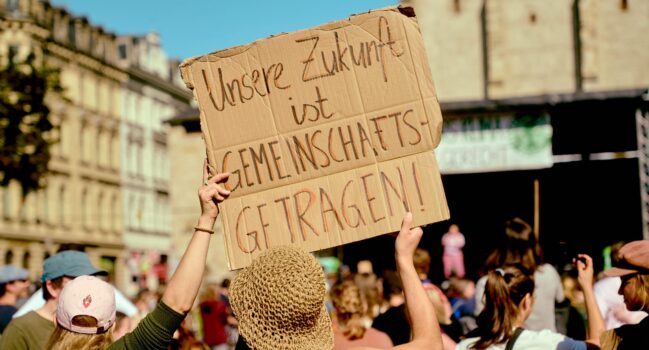 Unsere Zukunft
ist
GEMEINSCHAFTS-
GETRAGEN!